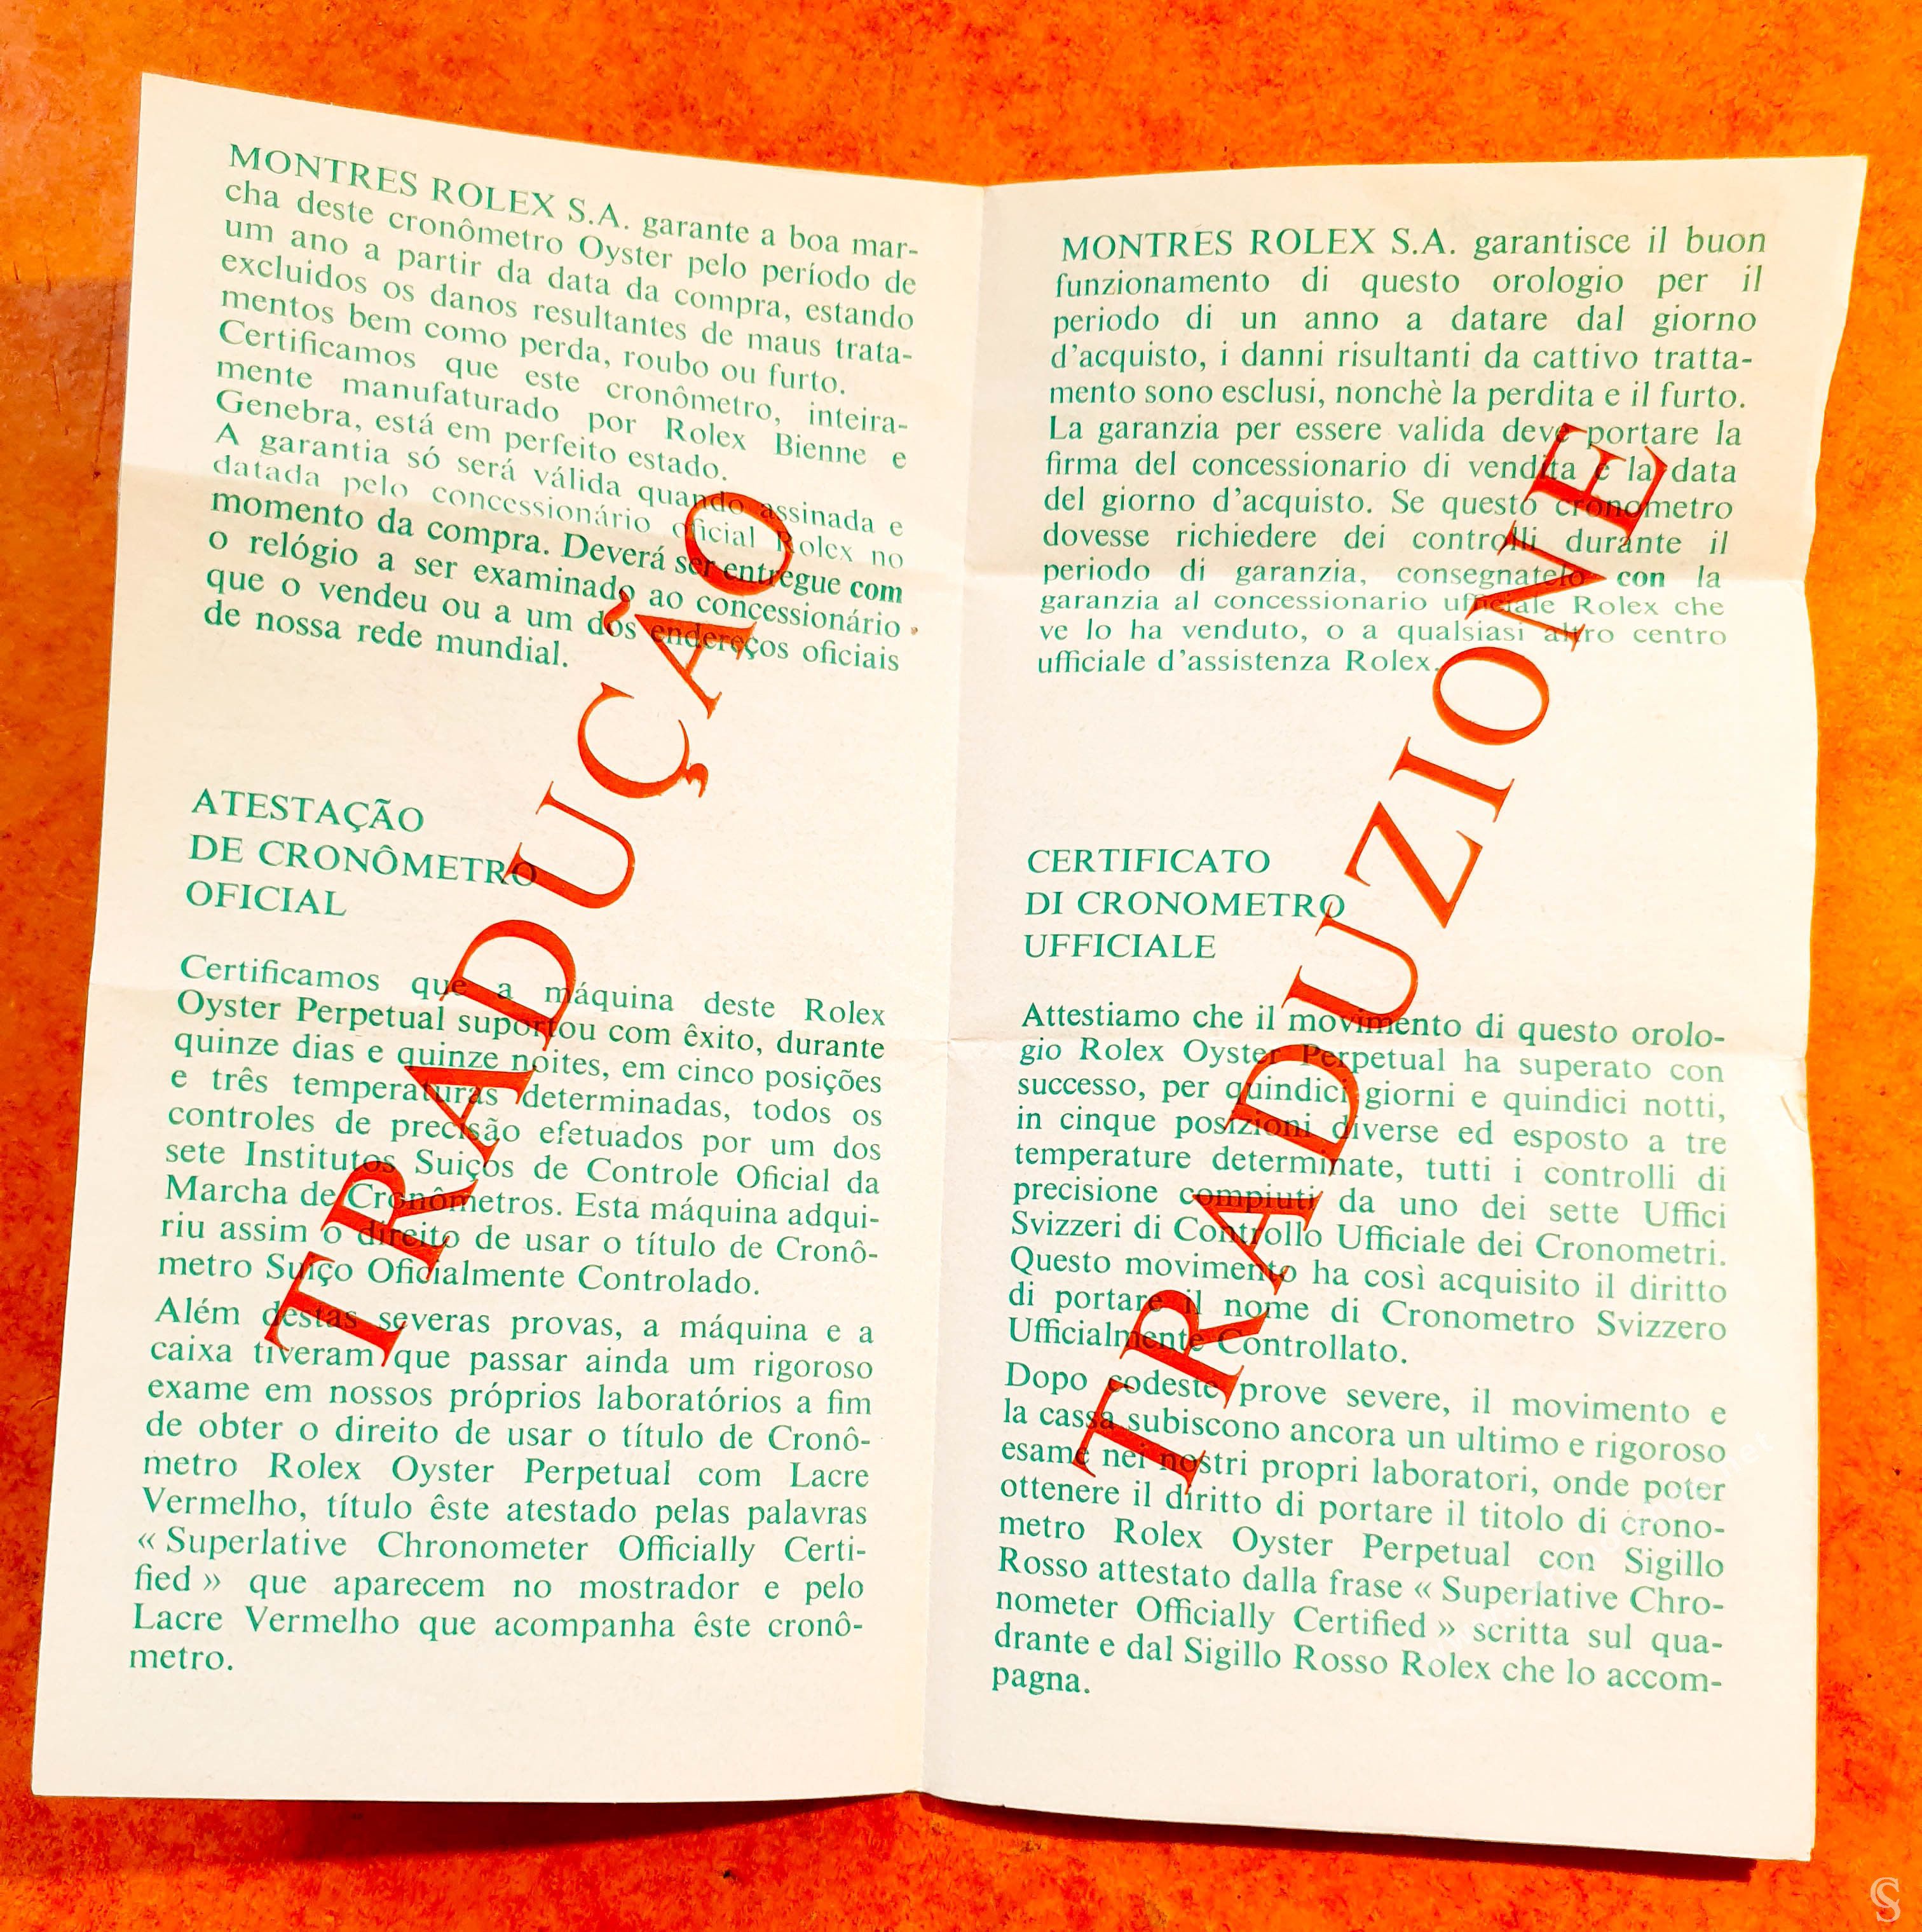 MONTRES ROLEX S.A. garante a boa mar-
cha deste cronômetro Oyster pelo período de
um ano a partir da data da compra, estando
excluidos os danos resultantes de maus trata-
mentos bem como perda, roubo ou furto.
Certificamos que este cronômetro, inteira-
mente manufaturado por Rolex Bienne e
Genebra, está em perfeito estado.
A garantia só será válida quando assinada e
datada pelo concessionário oficial Rolex no
momento da compra. Deverá ser entregue com
o relógio a ser examinado ao concessionário
que o vendeu ou a um dos endereços oficiais
de nossa rede mundial.
ATESTAÇÃO
DE CRONÔMETRO
OFICIAL
Certificamos que a máquina deste Rolex
Oyster Perpetual suportou com êxito, durante
quinze dias e quinze noites, em cinco posições
e três temperaturas determinadas, todos os
controles de precisão efetuados por um dos
sete Institutos Suiços de Controle Oficial da
Marcha de Cronômetros. Esta máquina adqui-
riu assim o direito de usar o título de Cronô-
metro Suiço Oficialmente Controlado.
Além destas severas provas, a máquina e a
caixa tiveram que passar ainda um rigoroso
exame em nossos próprios laboratórios a fim
de obter o direito de usar o título de Cronô-
metro Rolex Oyster Perpetual com Lacre
Vermelho, título êste atestado pelas palavras
« Superlative Chronometer Officially Certi-
fied » que aparecem no mostrador e pelo
Lacre Vermelho que acompanha êste cronô-
metro.
TRADUÇÃO
MONTRES ROLEX S.A. garantisce il buon
funzionamento di questo orologio per il
periodo di un anno a datare dal giorno
d'acquisto, i danni risultanti da cattivo tratta-
mento sono esclusi, nonchè la perdita e il furto.
La garanzia per essere valida deve portare la
firma del concessionario di vendita e la data
del giorno d'acquisto. Se questo cronometro
dovesse richiedere dei controlli durante il
periodo di garanzia, consegnatelo con la
garanzia al concessionario ufficiale Rolex che
ve lo ha venduto, o a qualsiasi altro centro
ufficiale d'assistenza Rolex.
CERTIFICATO
DI CRONOMETRO
UFFICIALE
Attestiamo che il movimento di questo orolo-
gio Rolex Oyster Perpetual ha superato con
successo, per quindici giorni e quindici notti,
in cinque posizioni diverse ed esposto a tre
temperature determinate, tutti i controlli di
precisione compiuti da uno dei sette Uffici
Svizzeri di Controllo Ufficiale dei Cronometri.
Questo movimento ha così acquisito il diritto
di portare il nome di Cronometro Svizzero
Ufficialmente Controllato.
Dopo codeste prove severe, il movimento e
la cassa subiscono ancora un ultimo e rigoroso
esame nei nostri propri laboratori, onde poter
ottenere il diritto di portare il titolo di crono-
metro Rolex Oyster Perpetual con Sigillo
Rosso attestato dalla frase « Superlative Chro-
nometer Officially Certified » scritta sul qua-
drante e dal Sigillo Rosso Rolex che lo accom-
pagna.
TRADUZIONE